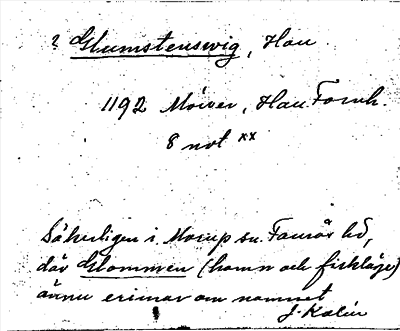 ? Glumstensvig, Hau
1192 Moiver, Hau Fornh.
8 not xx
Säkerligen i Morup sn. Faurås hd,
där Glommen (hamn och fiskläge)
ännu erinrar om namnet
J. Kalén